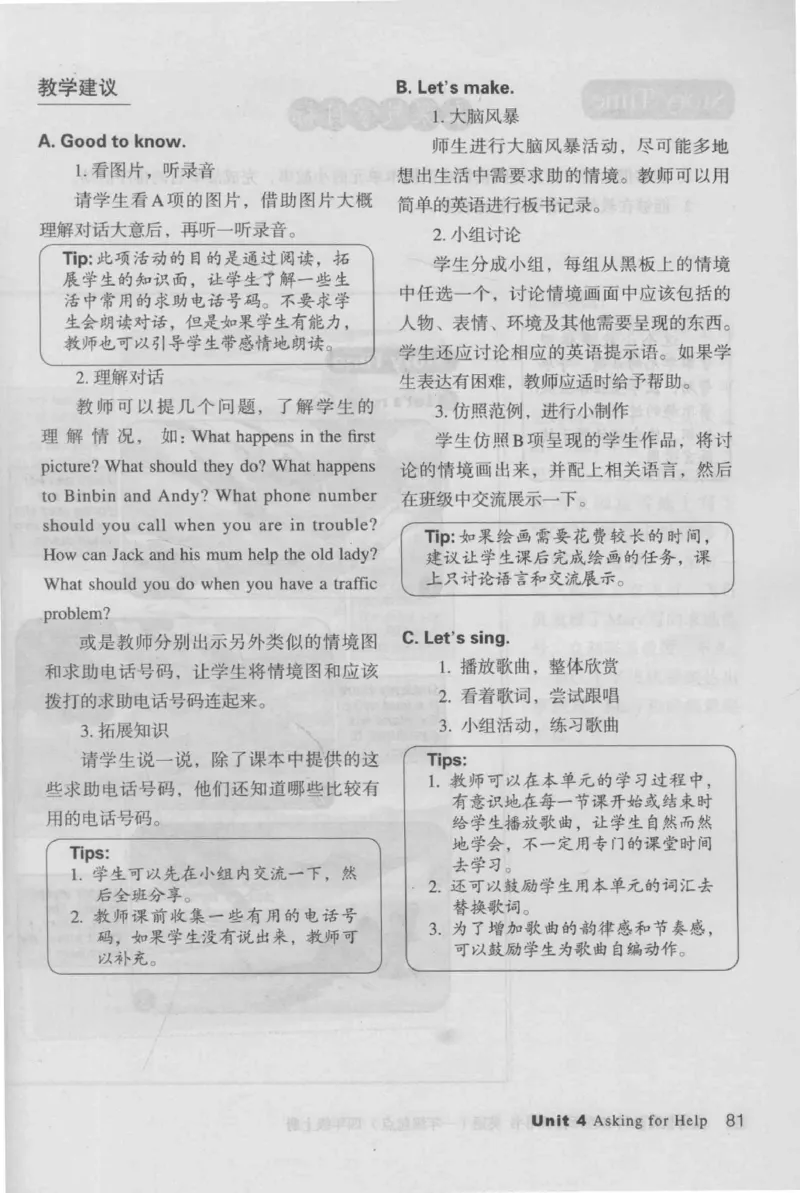 教学建议
A. Good to know.
1. 看图片，听录音
请学生看A项的图片，借助图片大概
理解对话大意后，再听一听录音。
Tip: 此项活动的目的是通过阅读，拓
展学生的知识面，让学生了解一些生
活中常用的求助电话号码。不要求学
生会朗读对话，但是如果学生有能力，
教师也可以引导学生带感情地朗读。
2. 理解对话
教师可以提几个问题，了解学生的
理解情况，如：What happens in the first
picture? What should they do? What happens
to Binbin and Andy? What phone number
should you call when you are in trouble?
How can Jack and his mum help the old lady?
What should you do when you have a traffic
problem?
或是教师分别出示另外类似的情境图
和求助电话号码，让学生将情境图和应该
拨打的求助电话号码连起来。
3. 拓展知识
请学生说一说，除了课本中提供的这
些求助电话号码，他们还知道哪些比较有
用的电话号码。
Tips:
1. 学生可以先在小组内交流一下，然
后全班分享。
2. 教师课前收集一些有用的电话号
码，如果学生没有说出来，教师可
以补充。
B. Let's make.
1. 大脑风暴
师生进行大脑风暴活动，尽可能多地
想出生活中需要求助的情境。教师可以用
简单的英语进行板书记录。
2. 小组讨论
学生分成小组，每组从黑板上的情境
中任选一个，讨论情境画面中应该包括的
人物、表情、环境及其他需要呈现的东西。
学生还应讨论相应的英语提示语。如果学
生表达有困难，教师应适时给予帮助。
3. 仿照范例，进行小制作
学生仿照B项呈现的学生作品，将讨
论的情境画出来，并配上相关语言，然后
在班级中交流展示一下。
Tip: 如果绘画需要花费较长的时间，
建议让学生课后完成绘画的任务，课
上只讨论语言和交流展示。
C. Let's sing.
1. 播放歌曲，整体欣赏
2. 看着歌词，尝试跟唱
3. 小组活动，练习歌曲
Tips:
1. 教师可以在本单元的学习过程中，
有意识地在每一节课开始或结束时
给学生播放歌曲，让学生自然而然
地学会，不一定用专门的课堂时间
去学习。
2. 还可以鼓励学生用本单元的词汇去
替换歌词。
3. 为了增加歌曲的韵律感和节奏感，
可以鼓励学生为歌曲自编动作。
Unit 4 Asking for Help 81